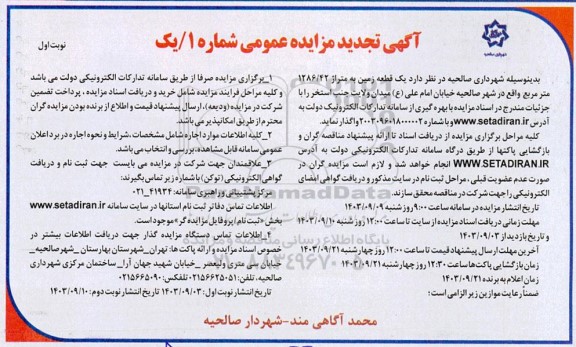 آگهی تجدید مزایده عمومی شماره ۱/یک
نوبت اول
بدینوسیله شهرداری صالحیه در نظر دارد یک قطعه زمین به متراژ ۱۲۸۶/۴۲
متر مربع واقع در شهر صالحیه خیابان امام علی (ع) میدان ولایت جنب استخر را با
جزئیات مندرج در اسناد مزایده با بهره گیری از سامانه تدارکات الکترونیک دولت به
آدرس www.setadiran.ir و با شماره واگذار نماید.
کلیه مراحل برگزاری مزایده از دریافت اسناد تا ارائه پیشنهاد مناقصه گران و
بازگشایی پاکتها از طریق درگاه سامانه تدارکات الکترونیکی دولت به آدرس
WWW.SETADIRAN.IR انجام خواهد شد و لازم است مزایده گران در
صورت عدم عضویت قبلی، مراحل ثبت نام در سایت مذکور و دریافت گواهی امضای
الکترونیکی را جهت شرکت در مناقصه محقق سازند.
تاریخ انتشار مزایده در سامانه ساعت ۹:۰۰ روز شنبه ۱۴۰۳/۰۹/۰۳
مهلت زمانی دریافت اسناد مزایده از سایت تا ساعت ۱۲:۰۰ روز شنبه ۱۴۰۳/۰۹/۱۰
و تاریخ بازدید از ۱۴۰۳/۰۹/۰۳
آخرین مهلت ارسال پیشنهاد قیمت تا ساعت ۱۲:۰۰ روز چهارشنبه ۱۴۰۳/۰۹/۲۱
زمان بازگشایی پاکت‌ها ساعت ۱۲:۳۰ روز چهارشنبه ۱۴۰۳/۰۹/۲۱
زمان اعلام به برنده ۱۴۰۳/۰۹/۲۱
ضمناً رعایت موازین زیر الزامی است:
۱_برگزاری مزایده صرفا از طریق سامانه تدارکات الکترونیکی دولت می باشد
و کلیه مراحل فرایند مزایده شامل خرید و دریافت اسناد مزایده، پرداخت تضمین
شرکت در مزایده (ودیعه)، ارسال پیشنهاد قیمت و اطلاع از برنده بودن مزایده گران
محترم از طریق امکانپذیر می باشد.
۲_کلیه اطلاعات موارد اجاره شامل مشخصات، شرایط و نحوه اجاره در برد اعلان
عمومی سامانه قابل مشاهده، بررسی و انتخاب می باشد.
۳_علاقمندان جهت شرکت در مزایده می بایست جهت ثبت نام و دریافت
گواهی الکترونیکی (توکن) با شماره زیر تماس بگیرند:
مرکز پشتیبانی و راهبری سامانه: ۴۱۹۳۴_۰۲۱
اطلاعات تماس دفاتر ثبت نام استانها در سایت سامانه www.setadiran.ir
بخش «ثبت نام/پروفایل مزایده گر» موجود است.
۴_اطلاعات تماس دستگاه مزایده گذار جهت دریافت اطلاعات بیشتر در
خصوص اسناد مزایده و ارائه پاکت ها: تهران_شهرستان بهارستان_شهر صالحیه_
خیابان ولیعصر_خیابان شهید جهان آرا_ساختمان مرکزی شهرداری
صالحیه، تلفن: ۰۲۱۵۶۶۲۵۰۵۱ تلفکس: ۰۲۱۵۶۶۵۰۹۰
تاریخ انتشار نوبت اول: ۱۴۰۳/۰۹/۰۳ تاریخ انتشار نوبت دوم: ۱۴۰۳/۰۹/۱۰
محمد آگاهی مند-شهردار صالحیه